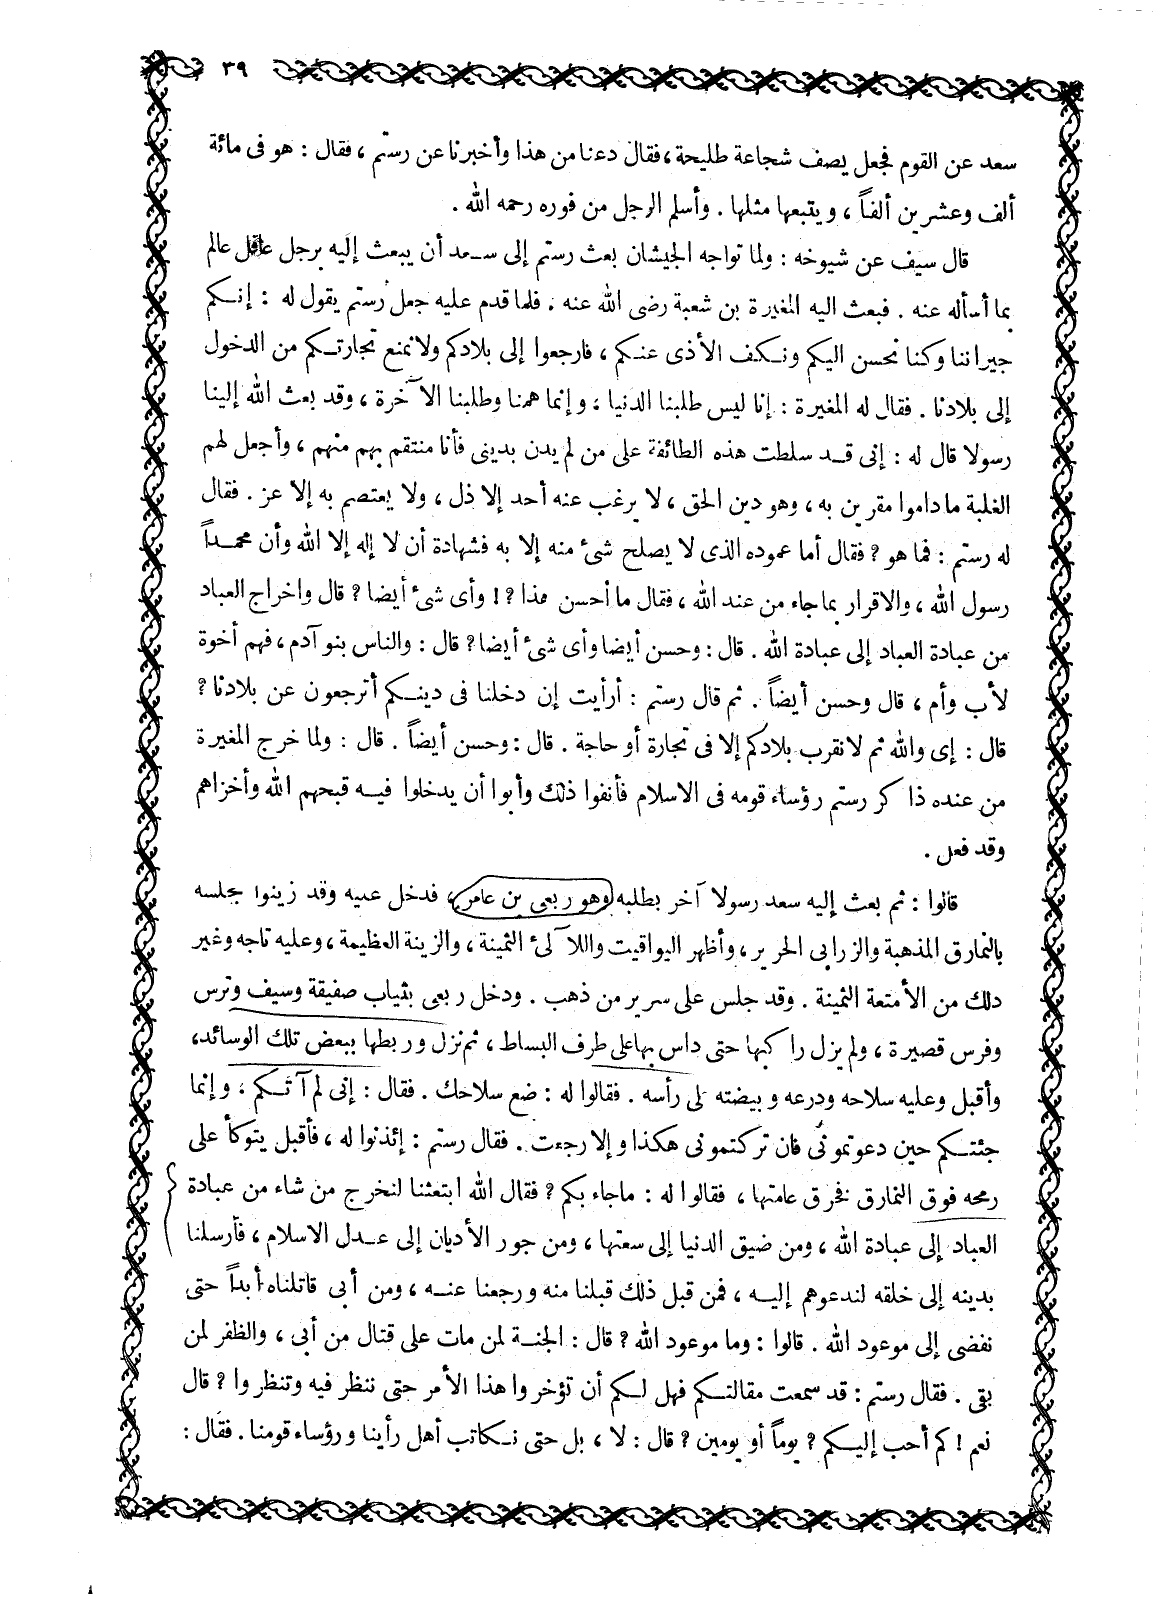 ٣٩
سعد عن القوم فجعل يصف شجاعة طليحة، فقال دعنا من هذا وأخبرنا عن رستم، فقال : هو فى مائة
ألف وعشرين ألفاً، ويتبعها مثلها . وأسلم الرجل من فوره رحمه الله .
قال سيف عن شيوخه : ولما تواجه الجيشان بعث رستم إلى سعد أن يبعث إليه برجل عاقل عالم
بما أسأله عنه . فبعث اليه المغيرة بن شعبة رضى الله عنه . فلما قدم عليه جعل رستم يقول له : إنكم
جيراننا وكنا نحسن اليكم ونكف الأذى عنكم، فارجعوا إلى بلادكم ولا نمنع تجارتكم من الدخول
إلى بلادنا . فقال له المغيرة : إنا ليس طلبنا الدنيا، وإنما همنا وطلبنا الآخرة، وقد بعث الله إلينا
رسولا قال له : إنى قد سلطت هذه الطائفة على من لم يدن بدينى فأنا منتقم بهم منهم، وأجعل لهم
الغلبة ما داموا مقرين به، وهو دين الحق، لا يرغب عنه أحد إلا ذل، ولا يعتصم به إلا عز . فقال
له رستم : فما هو ? فقال أما عموده الذى لا يصلح شىء منه إلا به فشهادة أن لا إله إلا الله وأن محمداً
رسول الله، والاقرار بما جاء من عند الله، فقال ما أحسن هذا ?! وأى شىء أيضا ? قال واخراج العباد
من عبادة العباد إلى عبادة الله . قال : وحسن أيضا وأى شىء أيضا ? قال : والناس بنو آدم، فهم أخوة
لأب وأم، قال وحسن أيضاً . ثم قال رستم : أرأيت إن دخلنا فى دينكم أترجعون عن بلادنا ?
قال : إى والله ثم لا نقرب بلادكم إلا فى تجارة أو حاجة . قال : وحسن أيضاً . قال : ولما خرج المغيرة
من عنده ذاكر رستم رؤساء قومه فى الاسلام فأنفوا ذلك وأبوا أن يدخلوا فيه قبحهم الله وأخزاهم
وقد فعل .
قالوا : ثم بعث إليه سعد رسولا آخر بطلبه وهو ربعى بن عامر، فدخل عليه وقد زينوا مجلسه
بالنمارق المذهبة والزرابى الحرير، وأظهر اليواقيت واللآلئ الثمينة، والزينة العظيمة، وعليه تاجه وغير
ذلك من الأمتعة الثمينة . وقد جلس على سرير من ذهب . ودخل ربعى بثياب صفيقة وسيف وترس
وفرس قصيرة، ولم يزل راكبها حتى داس بها على طرف البساط، ثم نزل وربطها ببعض تلك الوسائد،
وأقبل وعليه سلاحه ودرعه وبيضته على رأسه . فقالوا له : ضع سلاحك . فقال : إنى لم آتكم، وإنما
جئتكم حين دعوتمونى فان تركتمونى هكذا وإلا رجعت . فقال رستم : إئذنوا له، فأقبل يتوكأ على
رمحه فوق النمارق فخرق عامتها، فقالوا له : ما جاء بكم ? فقال الله ابتعثنا لنخرج من شاء من عبادة
العباد إلى عبادة الله، ومن ضيق الدنيا إلى سعتها، ومن جور الأديان إلى عدل الاسلام، فأرسلنا
بدينه إلى خلقه لندعوهم إليه، فمن قبل ذلك قبلنا منه ورجعنا عنه، ومن أبى قاتلناه أبداً حتى
نفضى إلى موعود الله . قالوا : وما موعود الله ? قال : الجنة لمن مات على قتال من أبى، والظفر لمن
بقى . فقال رستم : قد سمعت مقالتكم فهل لكم أن تؤخروا هذا الأمر حتى ننظر فيه وتنظروا ? قال
نعم ! كم أحب إليكم ? يوماً أو يومين ? قال : لا، بل حتى نكاتب أهل رأينا ورؤساء قومنا . فقال :